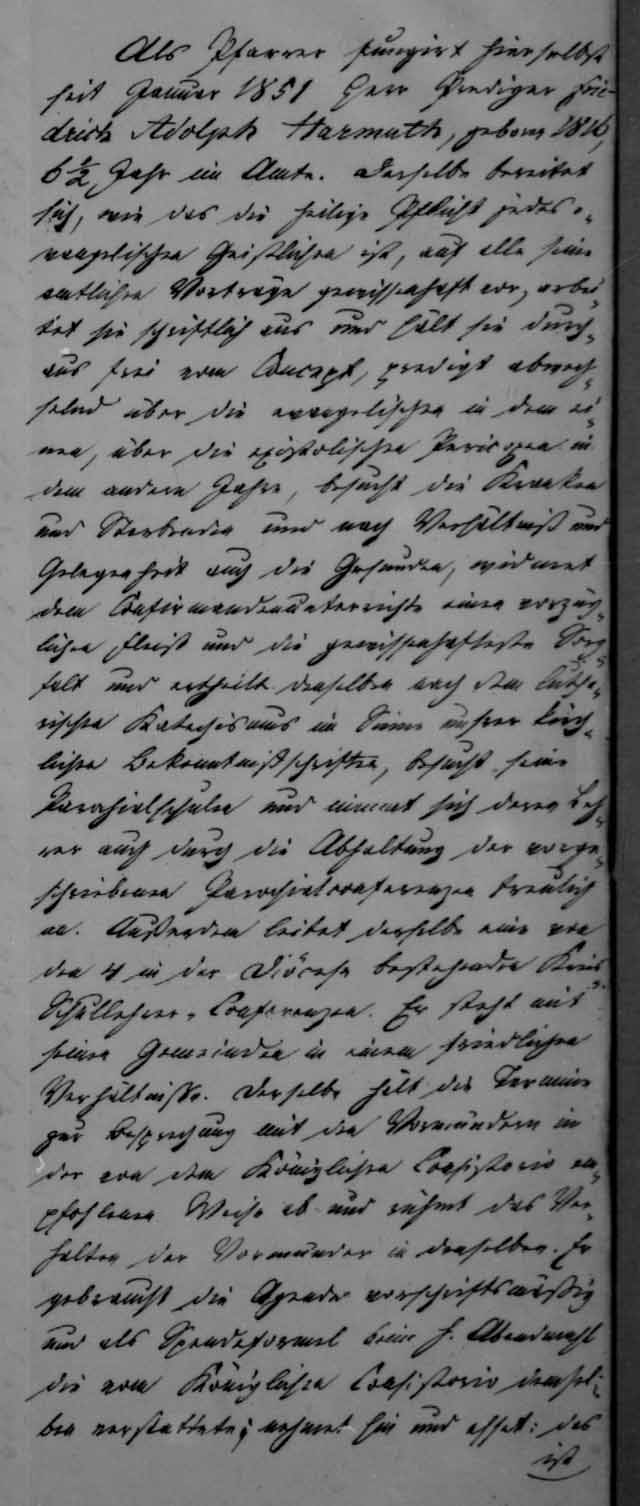 Als Pfarrer fungirt hierselbst
seit Januar 1851 Herr Prediger Frie-
drich Adolph Harmuth, geboren 1816,
6 1/2 Jahr im Amte. Derselbe bereitet
sich, wie das die heilige Pflicht jedes e-
vangelischen Geistlichen ist, auf alle seine
amtlichen Vorträge gewissenhaft vor, arbei-
tet sie schriftlich aus und hält sie durch-
aus frei vom Concept, predigt abwech-
selnd über die evangelischen in dem ei-
nen, über die epistolischen Pericopen in
dem andern Jahre, besucht die Kranken
und Sterbenden und nach Verhältniß und
Gelegenheit auch die Gesunden, widmet
dem Confirmandenunterrichte einen vorzüg-
lichen Fleiß und die gewissenhafteste Sorg-
falt und ertheilt denselben nach dem luthe-
rischen Katechismus im Sinne unsrer kirch-
lichen Bekenntnißschriften, besucht seine
Parochialschulen und nimmt sich deren Leh-
rer auch durch die Abhaltung der vorge-
schriebenen Parochialconferenzen treulich
an. Außerdem leitet derselbe eine von
den 4 in der Diöcese bestehenden Kreis-
Schullehrer-Conferenzen. Er steht mit
seinen Gemeinden in einem friedlichen
Verhältnisse. Derselbe hält die Termine
zur Besprechung mit den Vormündern in
der von dem Königlichen Consistorio em-
pfohlenen Weise ab und rühmt das Ver-
halten der Vormünder in denselben. Er
gebraucht die Agende vorschriftsmäßig
und als Spendeformel beim h. Abendmahl
die vom Königlichen Consistorio demsel-
ben verstattete; nehmet hin und esset: das
ist